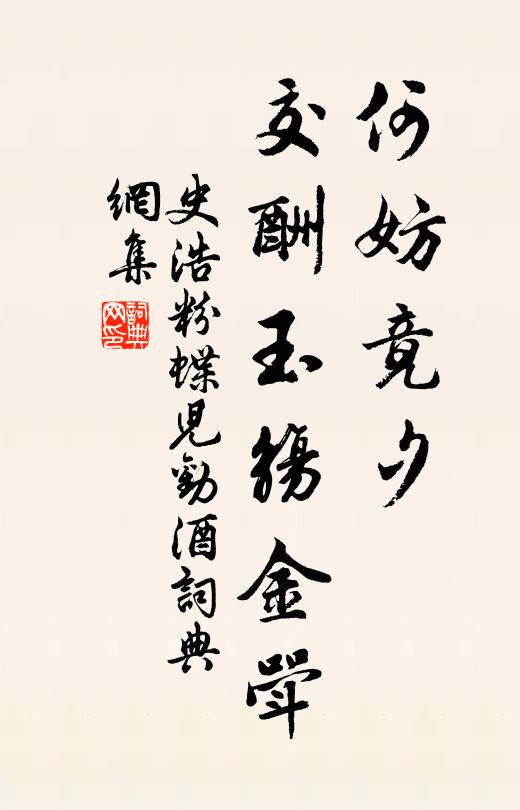 何妨竟夕
交酬玉觴金斝
史浩粉蝶兒勸酒詞典
網集
詞典
网印